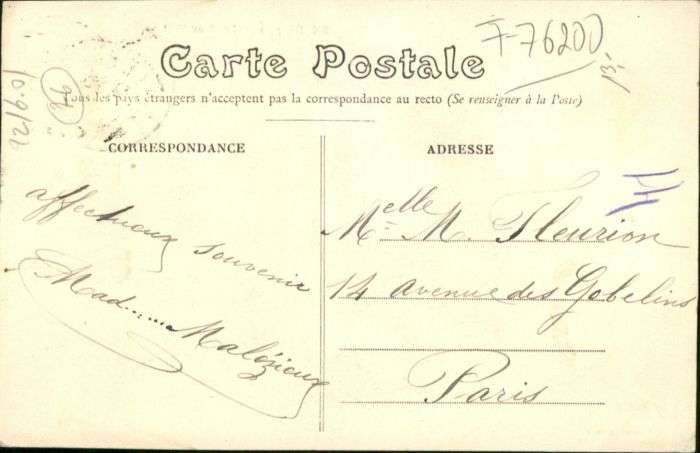 F-76200
13,-
Carte Postale
Tous les pays étrangers n'acceptent pas la correspondance au recto (Se renseigner à la Poste)
CORRESPONDANCE
ADRESSE
affectueux souvenir
Mad..... Malézieux
Melle M. Fleurion
14 avenue des Gobelins
Paris